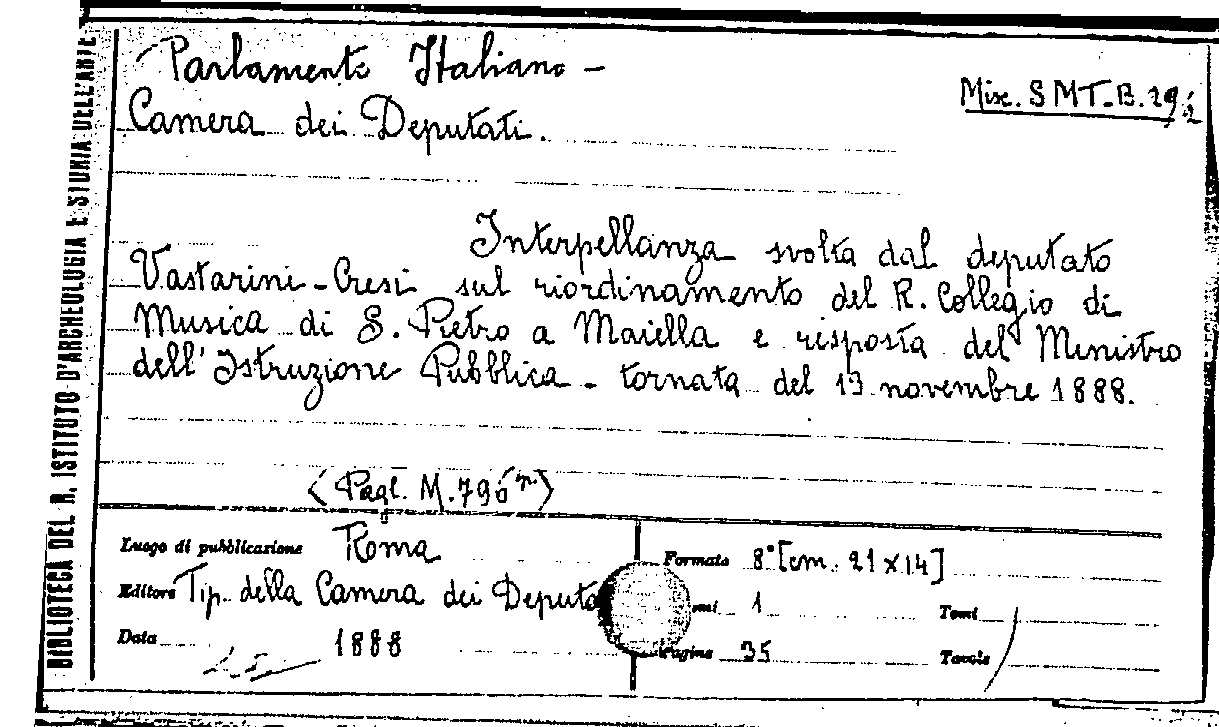 BIBLIOTECA DEL R. ISTITUTO D'ARCHEOLOGIA E STORIA DELL'ARTE
Parlamento Italiano -
Camera dei Deputati.
Misc. SMT-B.
Interpellanza svolta dal deputato
Vastarini-Cresi sul riordinamento del R. Collegio di
Musica di S. Pietro a Maiella e risposta del Ministro
dell'Istruzione Pubblica - tornata del 13 novembre 1888.
(Pagl. M.
Luogo di pubblicazione Roma
Editore Tip. della Camera dei Deputa
Data 1888
Formato 8° [cm. 21 x 14]
mi 1
Tomi
Pagine 35
Tavole